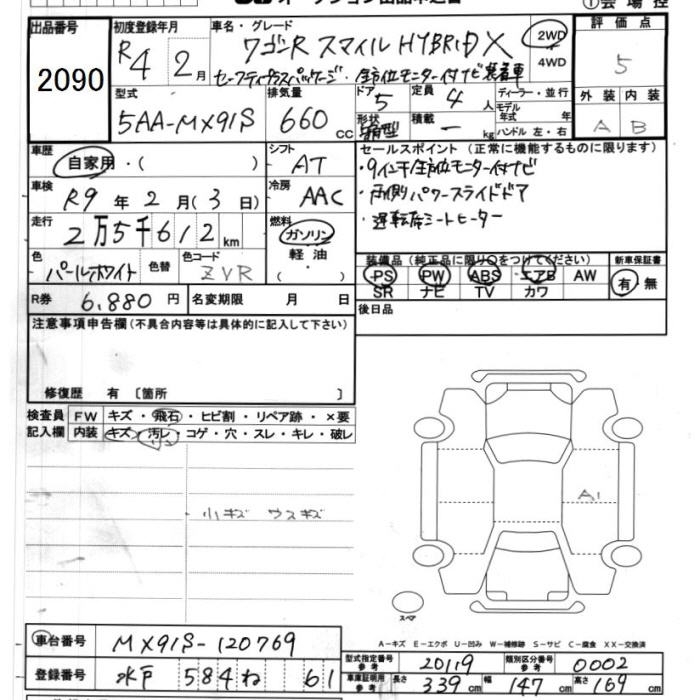 出品番号
2090
初度登録年月
R4年 2月
車名・グレード
ワゴンR スマイル HYBRID X
セーフティプラスパッケージ・全方位モニター付ナビ装着車
2WD
4WD
評価点
5
型式
5AA-MX91S
排気量
660 cc
ドア
5
形状
箱型
定員
4人
積載
— kg
ディーラー・並行
モデル年式 年
ハンドル 左・右
外装 内装
A B
車歴
自家用・( )
シフト
AT
セールスポイント(正常に機能するものに限ります)
・9インチ全方位モニター付ナビ
・両側パワースライドドア
・運転席シートヒーター
車検
R9年 2月(3日)
冷房
AAC
走行
2万5千612km
燃料
ガソリン
軽油
( )
色
パールホワイト
色替
色コード
ZVR
装備品(純正品に限り○をつけてください)
PS PW ABS エアB AW
SR ナビ TV カワ
新車保証書
有・無
R券 6,880円
名変期限 月 日
後日品
注意事項申告欄(不具合内容等は具体的に記入して下さい)
修復歴 有 〔箇所 〕
検査員記入欄
FW キズ・飛石・ヒビ割・リペア跡・×要
内装 キズ・汚レ・コゲ・穴・スレ・キレ・破レ
小キズ ウスキズ
A1
スペア
A-キズ E-エクボ U-凹み W-補修跡 S-サビ C-腐食 XX-交換済
車台番号
MX91S-120769
登録番号
水戸 584 ね 61
型式指定番号 参考
20119
類別区分番号 参考
0002
車庫証明用 参考
長さ 339cm
幅 147cm
高さ 169cm